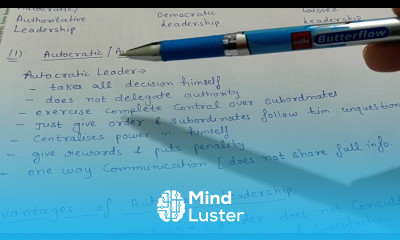 Autocratic/
Authoritative
Leadership
Democratic
Leadership
Laissez
Leadership
(1) Autocratic/
Autocratic Leader→
- takes all decision himself
- does not delegate authority
- exercise complete control over subordinates
- Just give order & subordinates follow him unquestion
- Centralises power in himself
- give rewards & puts penality
- one way Communication [does not share full info.
Butterflow
cello
Mind
Luster
vantages of Leadership
does not Consult